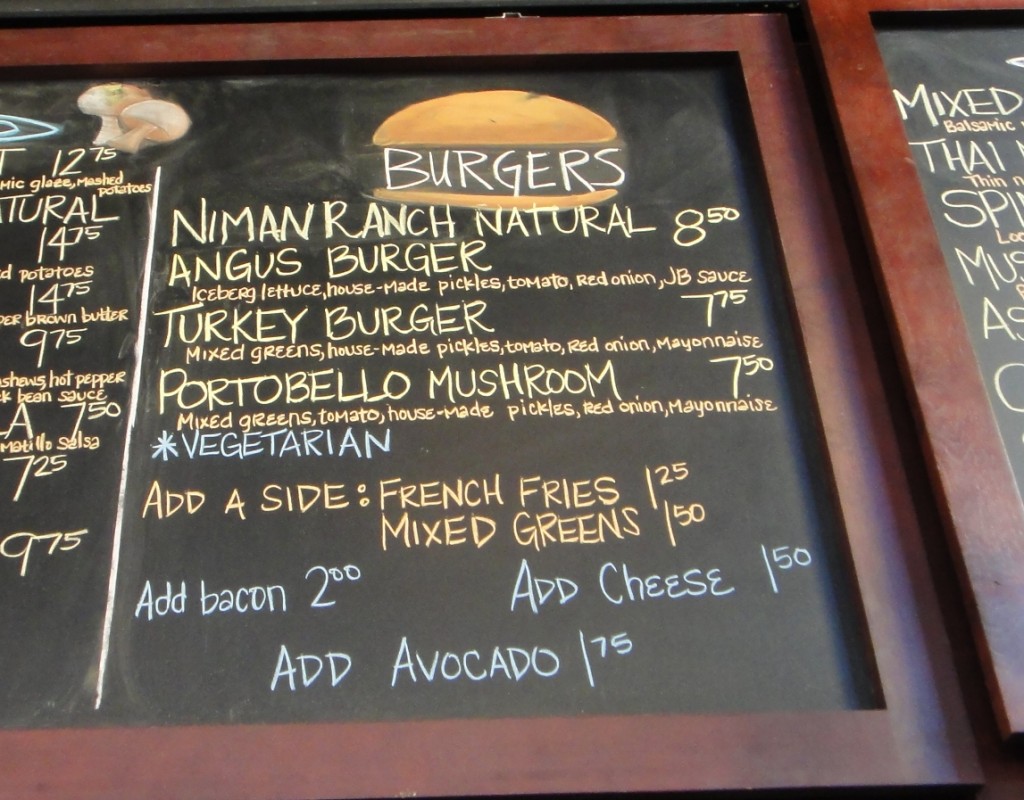 T 12.75
mic glaze, mashed
potatoes
TURAL
14.75
d potatoes
14.75
per brown butter
9.75
ashews, hot pepper
k bean sauce
A 7.50
matillo salsa
7.25
9.75
BURGERS
NIMAN RANCH NATURAL 8.50
ANGUS BURGER
Iceberg lettuce, house-made pickles, tomato, red onion, JB sauce
TURKEY BURGER 7.75
Mixed greens, house-made pickles, tomato, red onion, mayonnaise
PORTOBELLO MUSHROOM 7.50
Mixed greens, tomato, house-made pickles, red onion, mayonnaise
*VEGETARIAN
ADD A SIDE: FRENCH FRIES 1.25
MIXED GREENS 1.50
Add bacon 2.00
ADD CHEESE 1.50
ADD AVOCADO 1.75
MIXED
Balsamic
THAI
Thin
SPI
MUS
AS